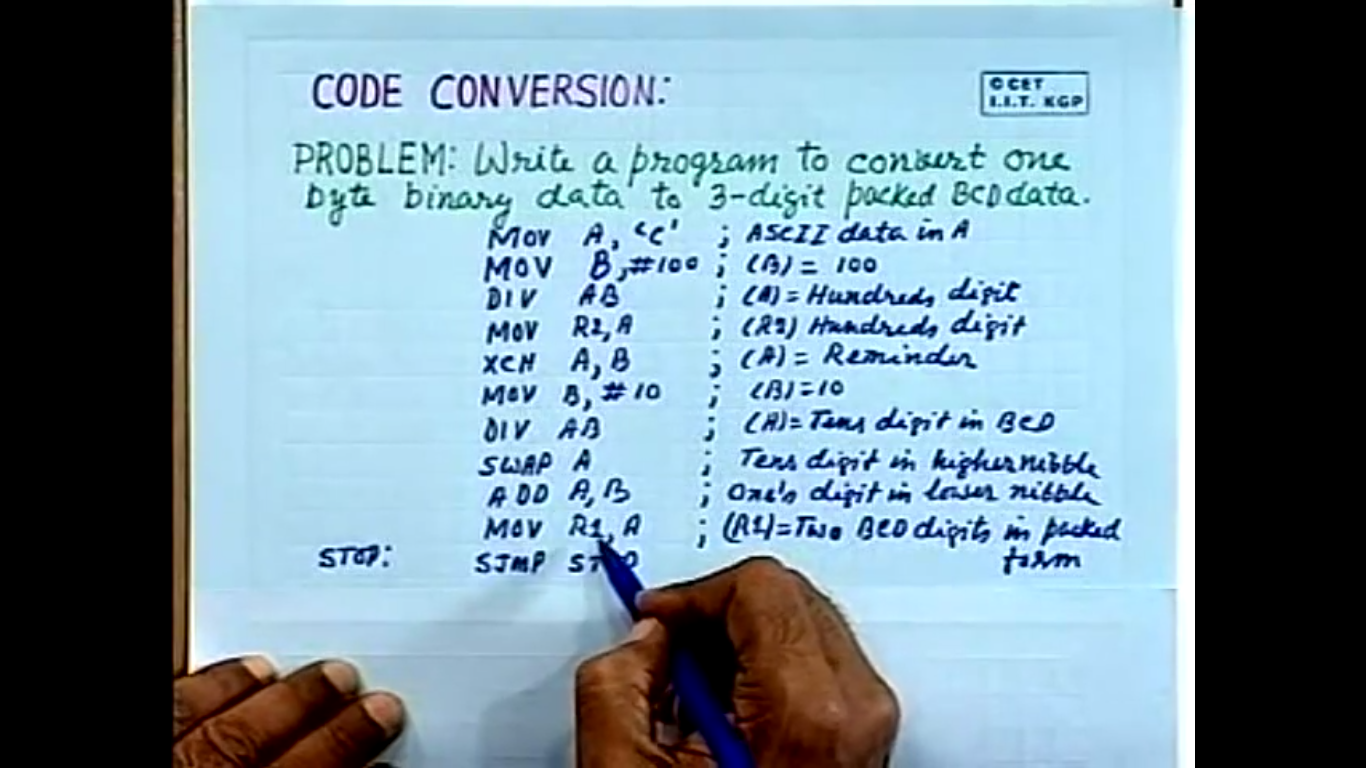 CODE CONVERSION:
© CET
I.I.T. KGP
PROBLEM: Write a program to convert one
byte binary data to 3-digit packed BCD data.
MOV A, 'C' ; ASCII data in A
MOV B, #100 ; (B) = 100
DIV AB ; (A) = Hundreds digit
MOV R2, A ; (R2) Hundreds digit
XCH A, B ; (A) = Reminder
MOV B, #10 ; (B) = 10
DIV AB ; (A) = Tens digit in BCD
SWAP A ; Tens digit in higher nibble
ADD A, B ; One's digit in lower nibble
MOV R1, A ; (R1) = Two BCD digits in packed
STOP: SJMP STOP form